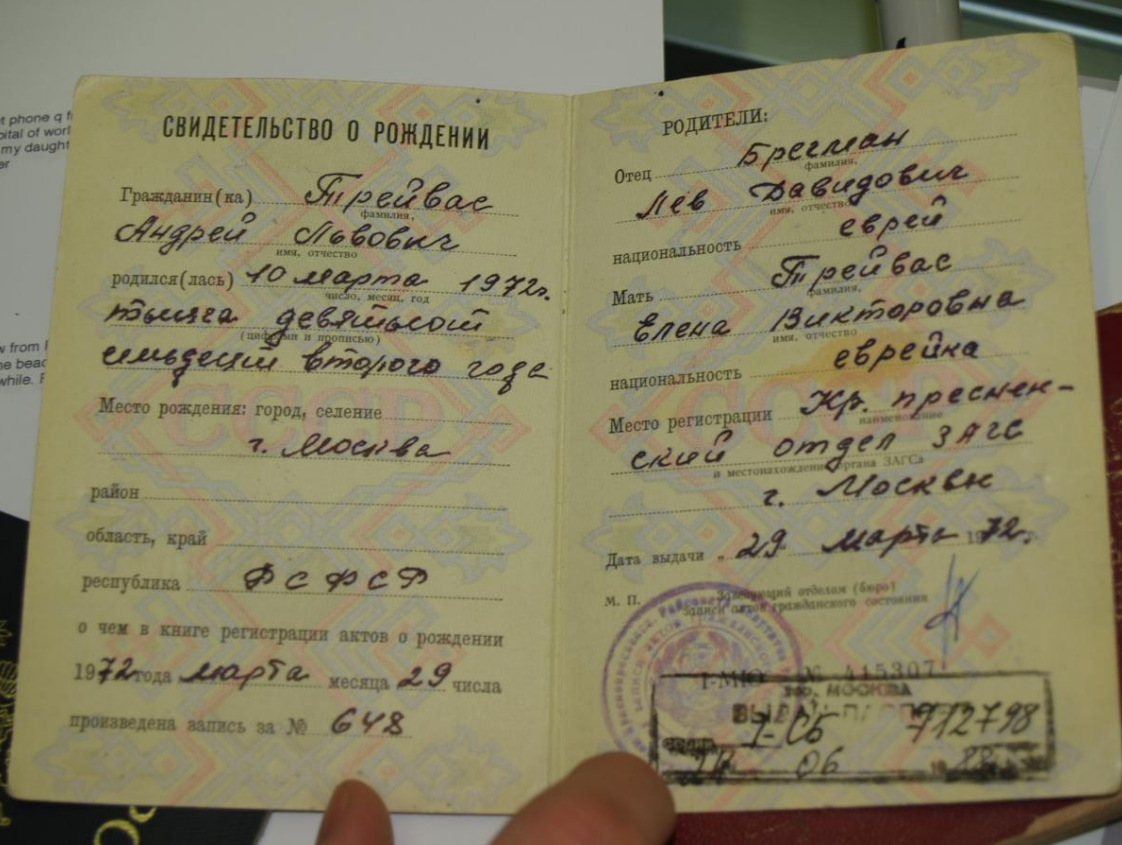 СВИДЕТЕЛЬСТВО О РОЖДЕНИИ
Гражданин(ка) Трейвас
фамилия,
Андрей Львович
имя, отчество
родился(лась) 10 марта 1972г.
число, месяц, год
тысяча девятьсот
(цифрами и прописью)
семьдесят второго года
Место рождения: город, селение
г. Москва
район
область, край
республика РСФСР
о чем в книге регистрации актов о рождении
1972 года марта месяца 29 числа
произведена запись за № 648
РОДИТЕЛИ:
Отец Брегман
фамилия,
Лев Давидович
имя, отчество
национальность еврей
Мать Трейвас
фамилия,
Елена Викторовна
имя, отчество
национальность еврейка
Место регистрации Кр. преснен-
наименование
ский отдел ЗАГС
и местонахождение органа ЗАГСа
г. Москвы
Дата выдачи „29 марта 1972г.
М. П.
Заведующий отделом (бюро)
записи актов гражданского состояния
I-МЮ № 445307
гор. МОСКВА
ВЫДАН ПАСПОРТ
I-СБ 712798
06 1988
t phone q f
pital of worl
my daught
er
w from
he beac
while. F